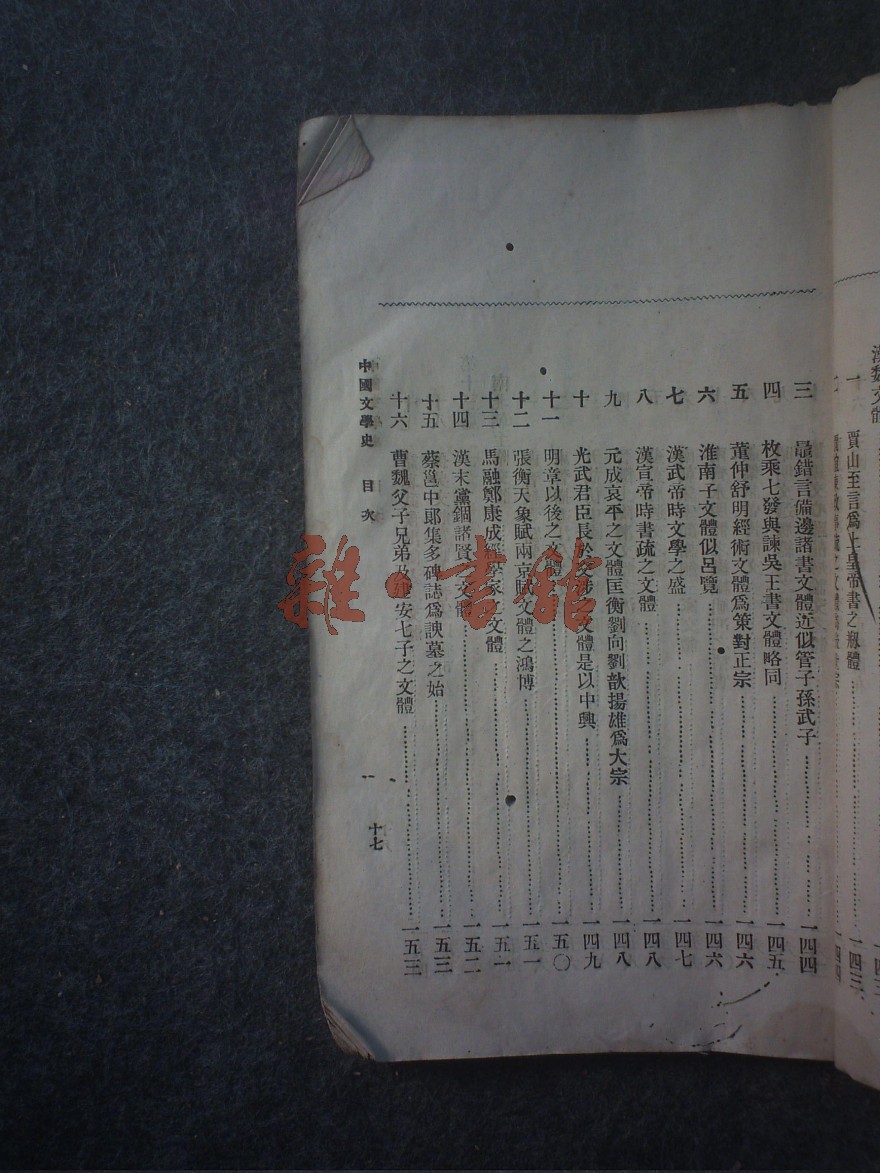 漢魏文體
一 賈山至言爲上皇帝書之初體 一四三
二 一四四
三 鼂錯言備邊諸書文體近似管子孫武子 一四四
四 枚乘七發與諫吳王書文體略同 一四五
五 董仲舒明經術文體爲策對正宗 一四六
六 淮南子文體似呂覽 一四六
七 漢武帝時文學之盛 一四七
八 漢宣帝時書疏之文體 一四八
九 元成哀平之文體匡衡劉向劉歆揚雄爲大宗 一四八
十 光武君臣長於交涉之文體是以中興 一四九
十一 明章以後之文體 一五〇
十二 張衡天象賦兩京賦文體之鴻博 一五一
十三 馬融鄭康成經學家之文體 一五一
十四 漢末黨錮諸賢之文體 一五二
十五 蔡邕中郎集多碑誌爲諛墓之始 一五三
十六 曹魏父子兄弟及建安七子之文體 一五三
中國文學史 目次 十七
雜·書舘